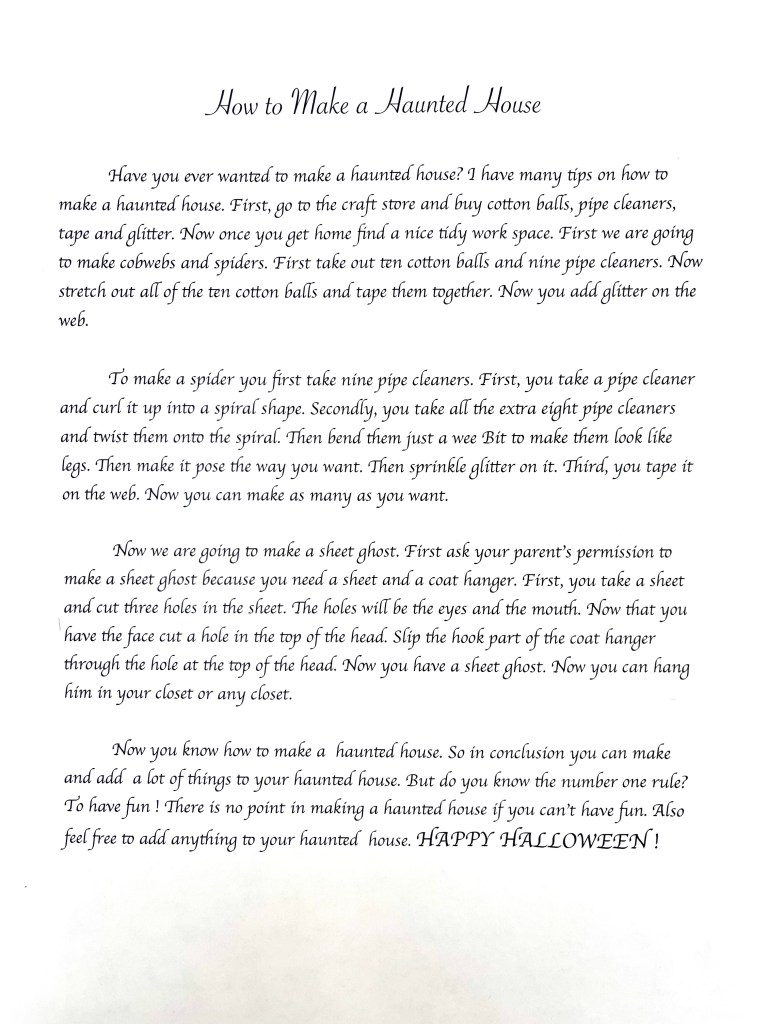 How to Make a Haunted House
Have you ever wanted to make a haunted house? I have many tips on how to
make a haunted house. First, go to the craft store and buy cotton balls, pipe cleaners,
tape and glitter. Now once you get home find a nice tidy work space. First we are going
to make cobwebs and spiders. First take out ten cotton balls and nine pipe cleaners. Now
stretch out all of the ten cotton balls and tape them together. Now you add glitter on the
web.
To make a spider you first take nine pipe cleaners. First, you take a pipe cleaner
and curl it up into a spiral shape. Secondly, you take all the extra eight pipe cleaners
and twist them onto the spiral. Then bend them just a wee Bit to make them look like
legs. Then make it pose the way you want. Then sprinkle glitter on it. Third, you tape it
on the web. Now you can make as many as you want.
Now we are going to make a sheet ghost. First ask your parent's permission to
make a sheet ghost because you need a sheet and a coat hanger. First, you take a sheet
and cut three holes in the sheet. The holes will be the eyes and the mouth. Now that you
have the face cut a hole in the top of the head. Slip the hook part of the coat hanger
through the hole at the top of the head. Now you have a sheet ghost. Now you can hang
him in your closet or any closet.
Now you know how to make a haunted house. So in conclusion you can make
and add a lot of things to your haunted house. But do you know the number one rule?
To have fun ! There is no point in making a haunted house if you can't have fun. Also
feel free to add anything to your haunted house. HAPPY HALLOWEEN !